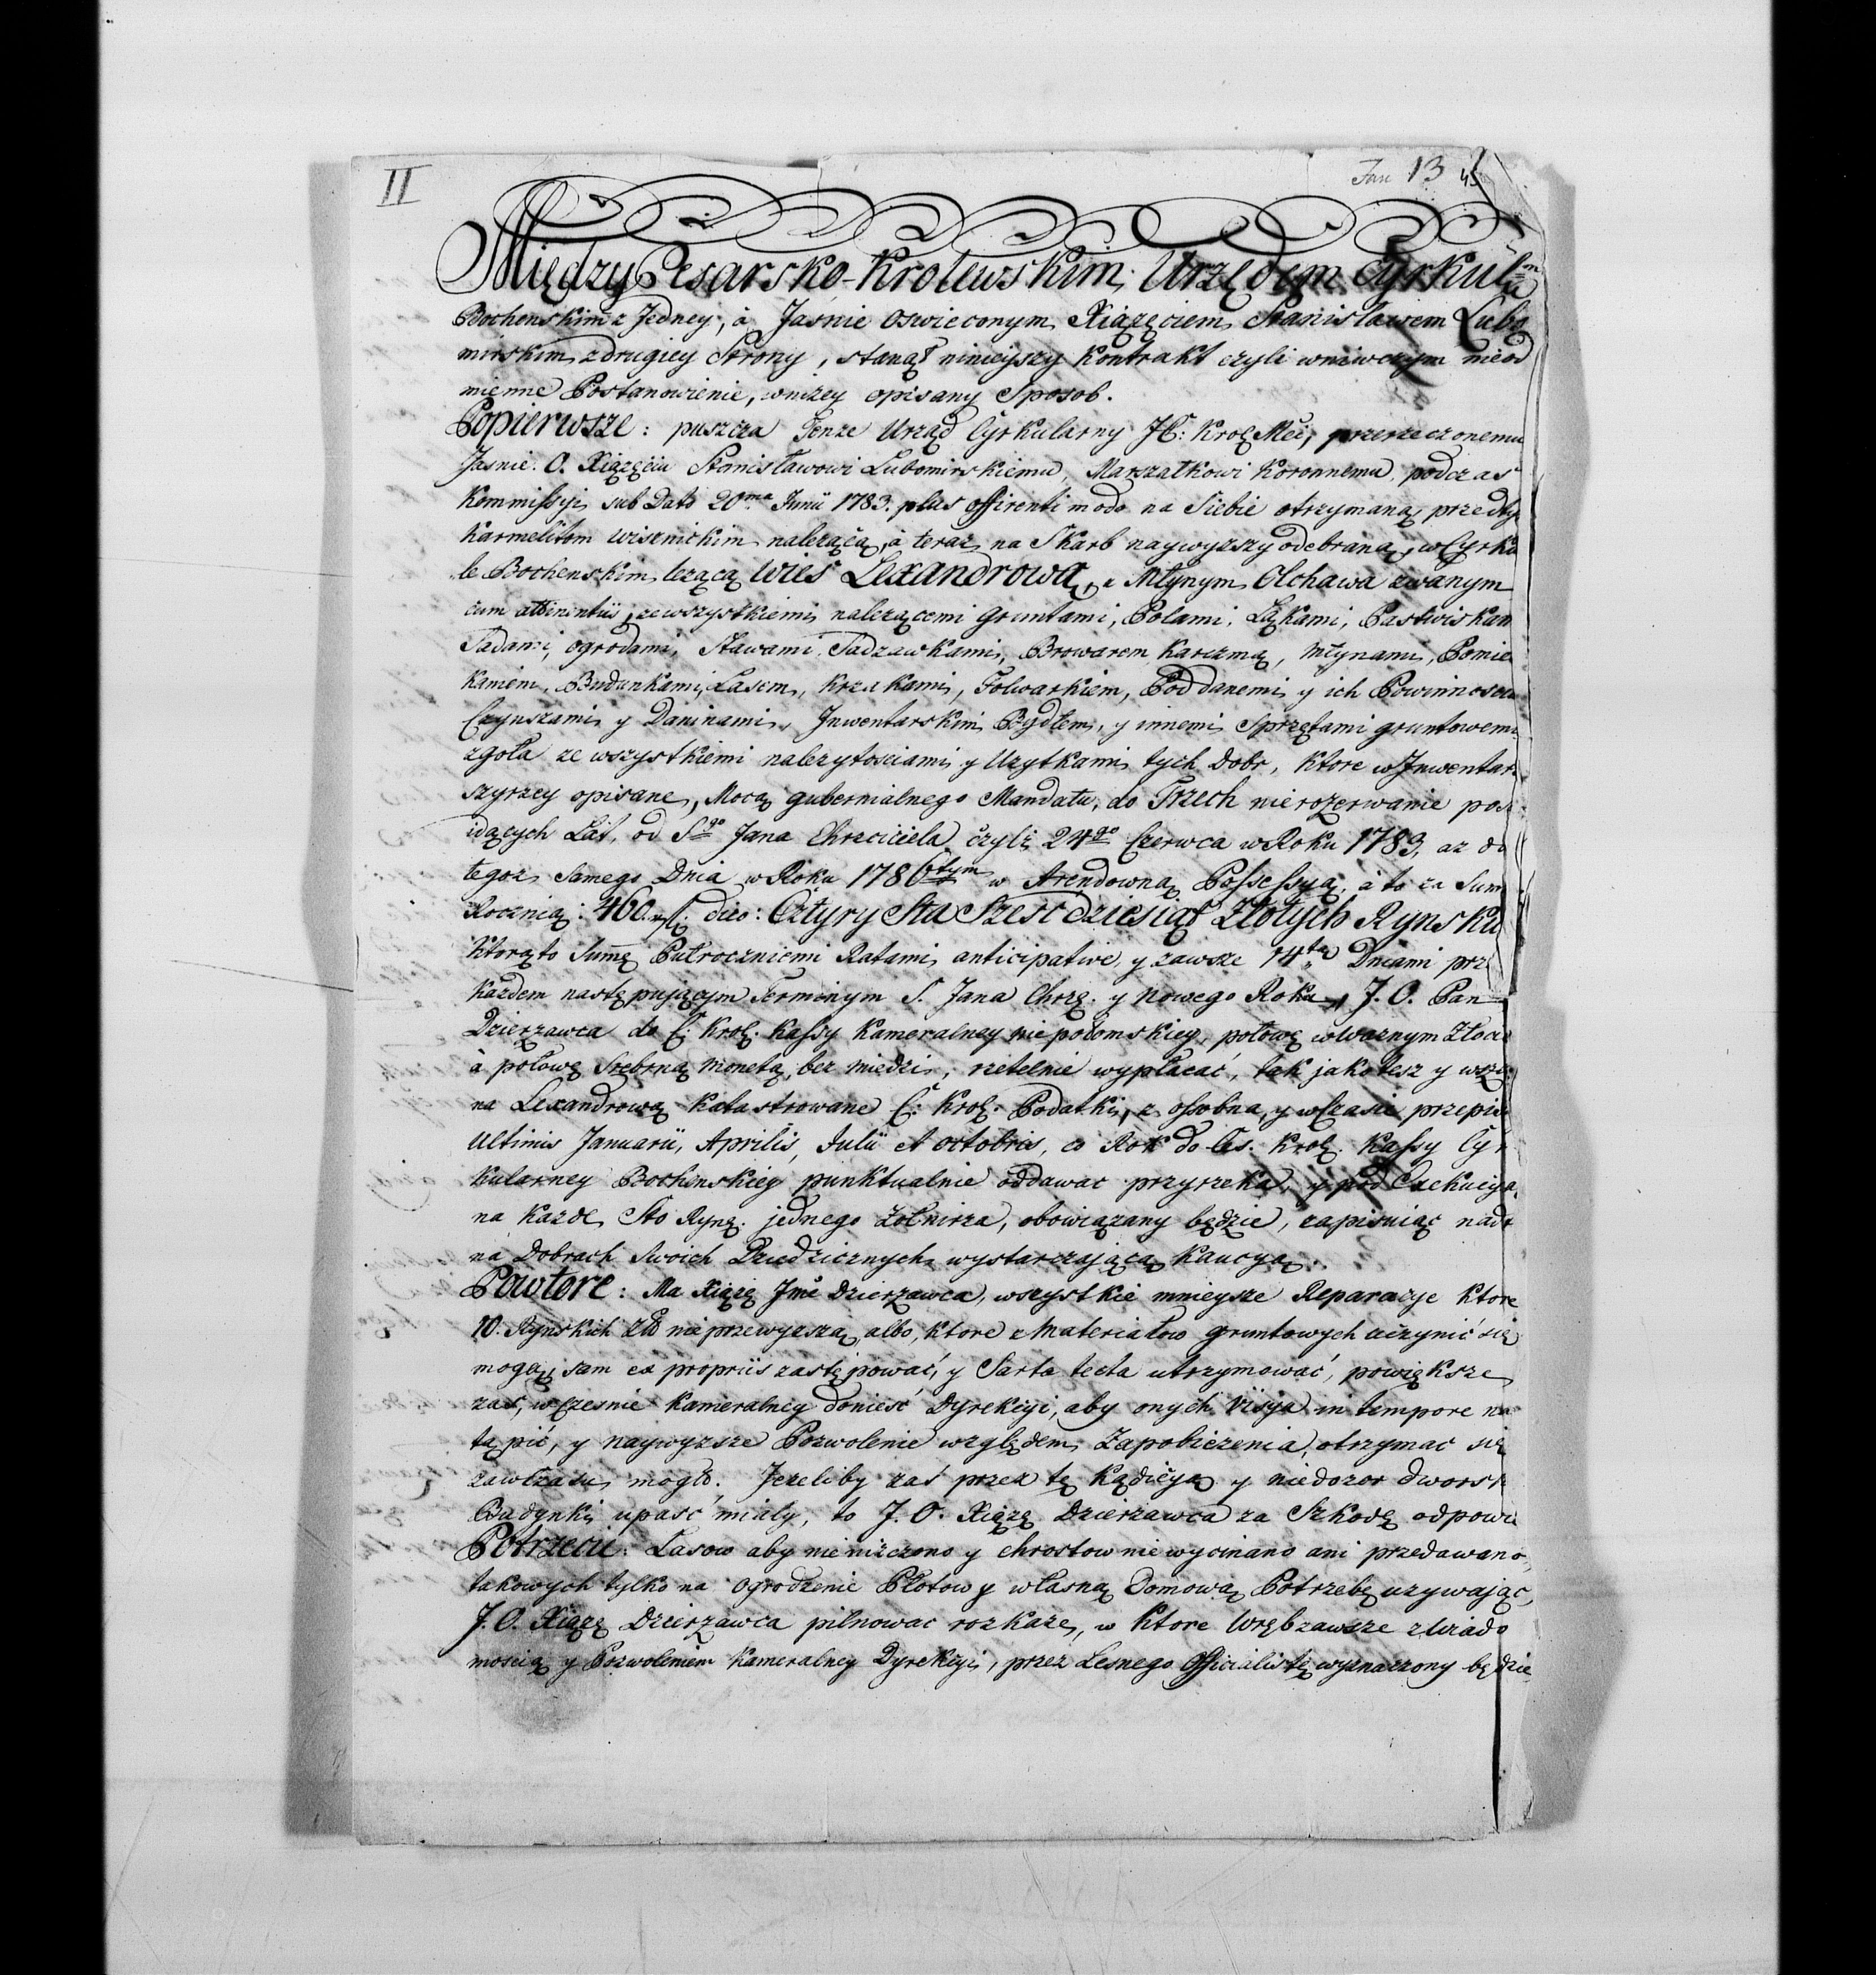 II
Jan 13 45
Między Cesarsko-Krolewskim Urzędem Cyrkula
Bochenskim z Jedney, à Jasnie Oswieconym Xiążęciem Stanisławem Lubo
mirskim z drugiey Strony, stanął ninieyszy Kontrakt czyli wniwczym nieod
mienne Postanowienie, w niżey opisany Sposob.
Popierwsze: puszcza Tenze Urząd Cyrkularny JC: Krol Mci, przerzeczonemu
Jasnie O. Xiążęciu Stanisławowi Lubomirskiemu, Marszałkowi Koronnemu, podczas
Kommissyi sub Dato 20ma Junii 1783. plus offerenti modo na Siebie otrzymaną przedty
Karmelitom Wisznickim należącą, à teraz na Skarb naywyższy odebraną, w Cyrku
le Bochenskim leżącą Wies Lexandrową, z Młynym Olchawa zwanym
cum attinentiis, ze wszystkiemi należącemi Gruntami, Polami, Łąkami, Pastwiskam
Sadami, ogrodami, Stawami, Sadzawkami, Browarem Karczmą, Młynami, Pomie
kaniem, Budunkami, Lasem, Krzakami, Folwarkiem, Poddanemi y ich Powinnoscia
Czynszami y Daninami, Inwentarskim Bydłem, y innemi Sprzętami gruntowemi
zgoła ze wszystkiemi należytosciami y Użytkami tych Dobr, ktore w Inwentar
szyrzey opisane, Mocą gubernialnego Mandatu, do Trzech nierozerwanie po
idących Lat, od Sgo Jana Chrzciciela czyli 24go Czerwca w Roku 1783, az do
tegoż samego Dnia w Roku 1786tym w Arendowną Possessyą, à to za Sum
Roczną: 460 fl: dico: Cztyry Sta Szesc dziesiąt Złotych Rynsku
Ktorą to Summę Pułroczniemi Ratami anticipative, y zawsze 14ta Dniami prz
każdem następującym Terminym S. Jana Chrzc. y Nowego Roku, J. O. Pan
Dzierżawca do C: Krol. Kassy Kameralney niepołomskiey, połowę w Ważnym Złoci
à połowę Srebrną Monetą, bez miedzi, rzetelnie wypłacać, tak jako tesz y wszy
na Lexandrową Katastrowane C: Krol. Podatki, z ossobna, y w Czasie przepis
Ultimis Januarii, Aprilis, Julii et Octobris, co Rok do Ces. Krol. Kassy Cyr
kularney Bochenskiey punktualnie oddawac przyrzeka, y pod Exekucyą,
na kazde Sto Ryns. jednego Żołnirza, obowiązany będzie, zapisuiąc nadt
na Dobrach Swoich Dziedzicznych wystarczającą Kaucyą.
Powtore: Ma Xiążę Jmć Dzierżawca, wszystkie mnieysze Reparacye ktore
10. Rynskich Zło nieprzewyższą, albo, ktore z Materiałow gruntowych uczynić się
mogą, sam ex propriis zastępować, y Sarta tecta utrzymować, powiększe
zas, w Czesnie Kameralney doniesć Dyrekcyi, aby onych Visya in tempore na
tąpić, y naywyższe Pozwolenie względem Zapobieżenia, otrzymac się
zawczasu mogło. Jezeliby zaś przez tę Kądycyą y niedozor dworsk
Budynki upasć miały, to J. O. Xiążę Dzierżawca za Szkodę odpowi
Potrzecie: Lasow aby nie niszczono y chrostow nie wycinano ani przedawano,
takowych tylko na ogrodzenie Płotow y własną Domową Potrzebę uzywając,
J. O. Xiążę Dzierżawca pilnowac rozkaże, w ktore Wręb zawsze z Wiado
moscią y Pozwoleniem Kameralney Dyrekcyi, przez Lesnego Officialistę wyznaczony będzie